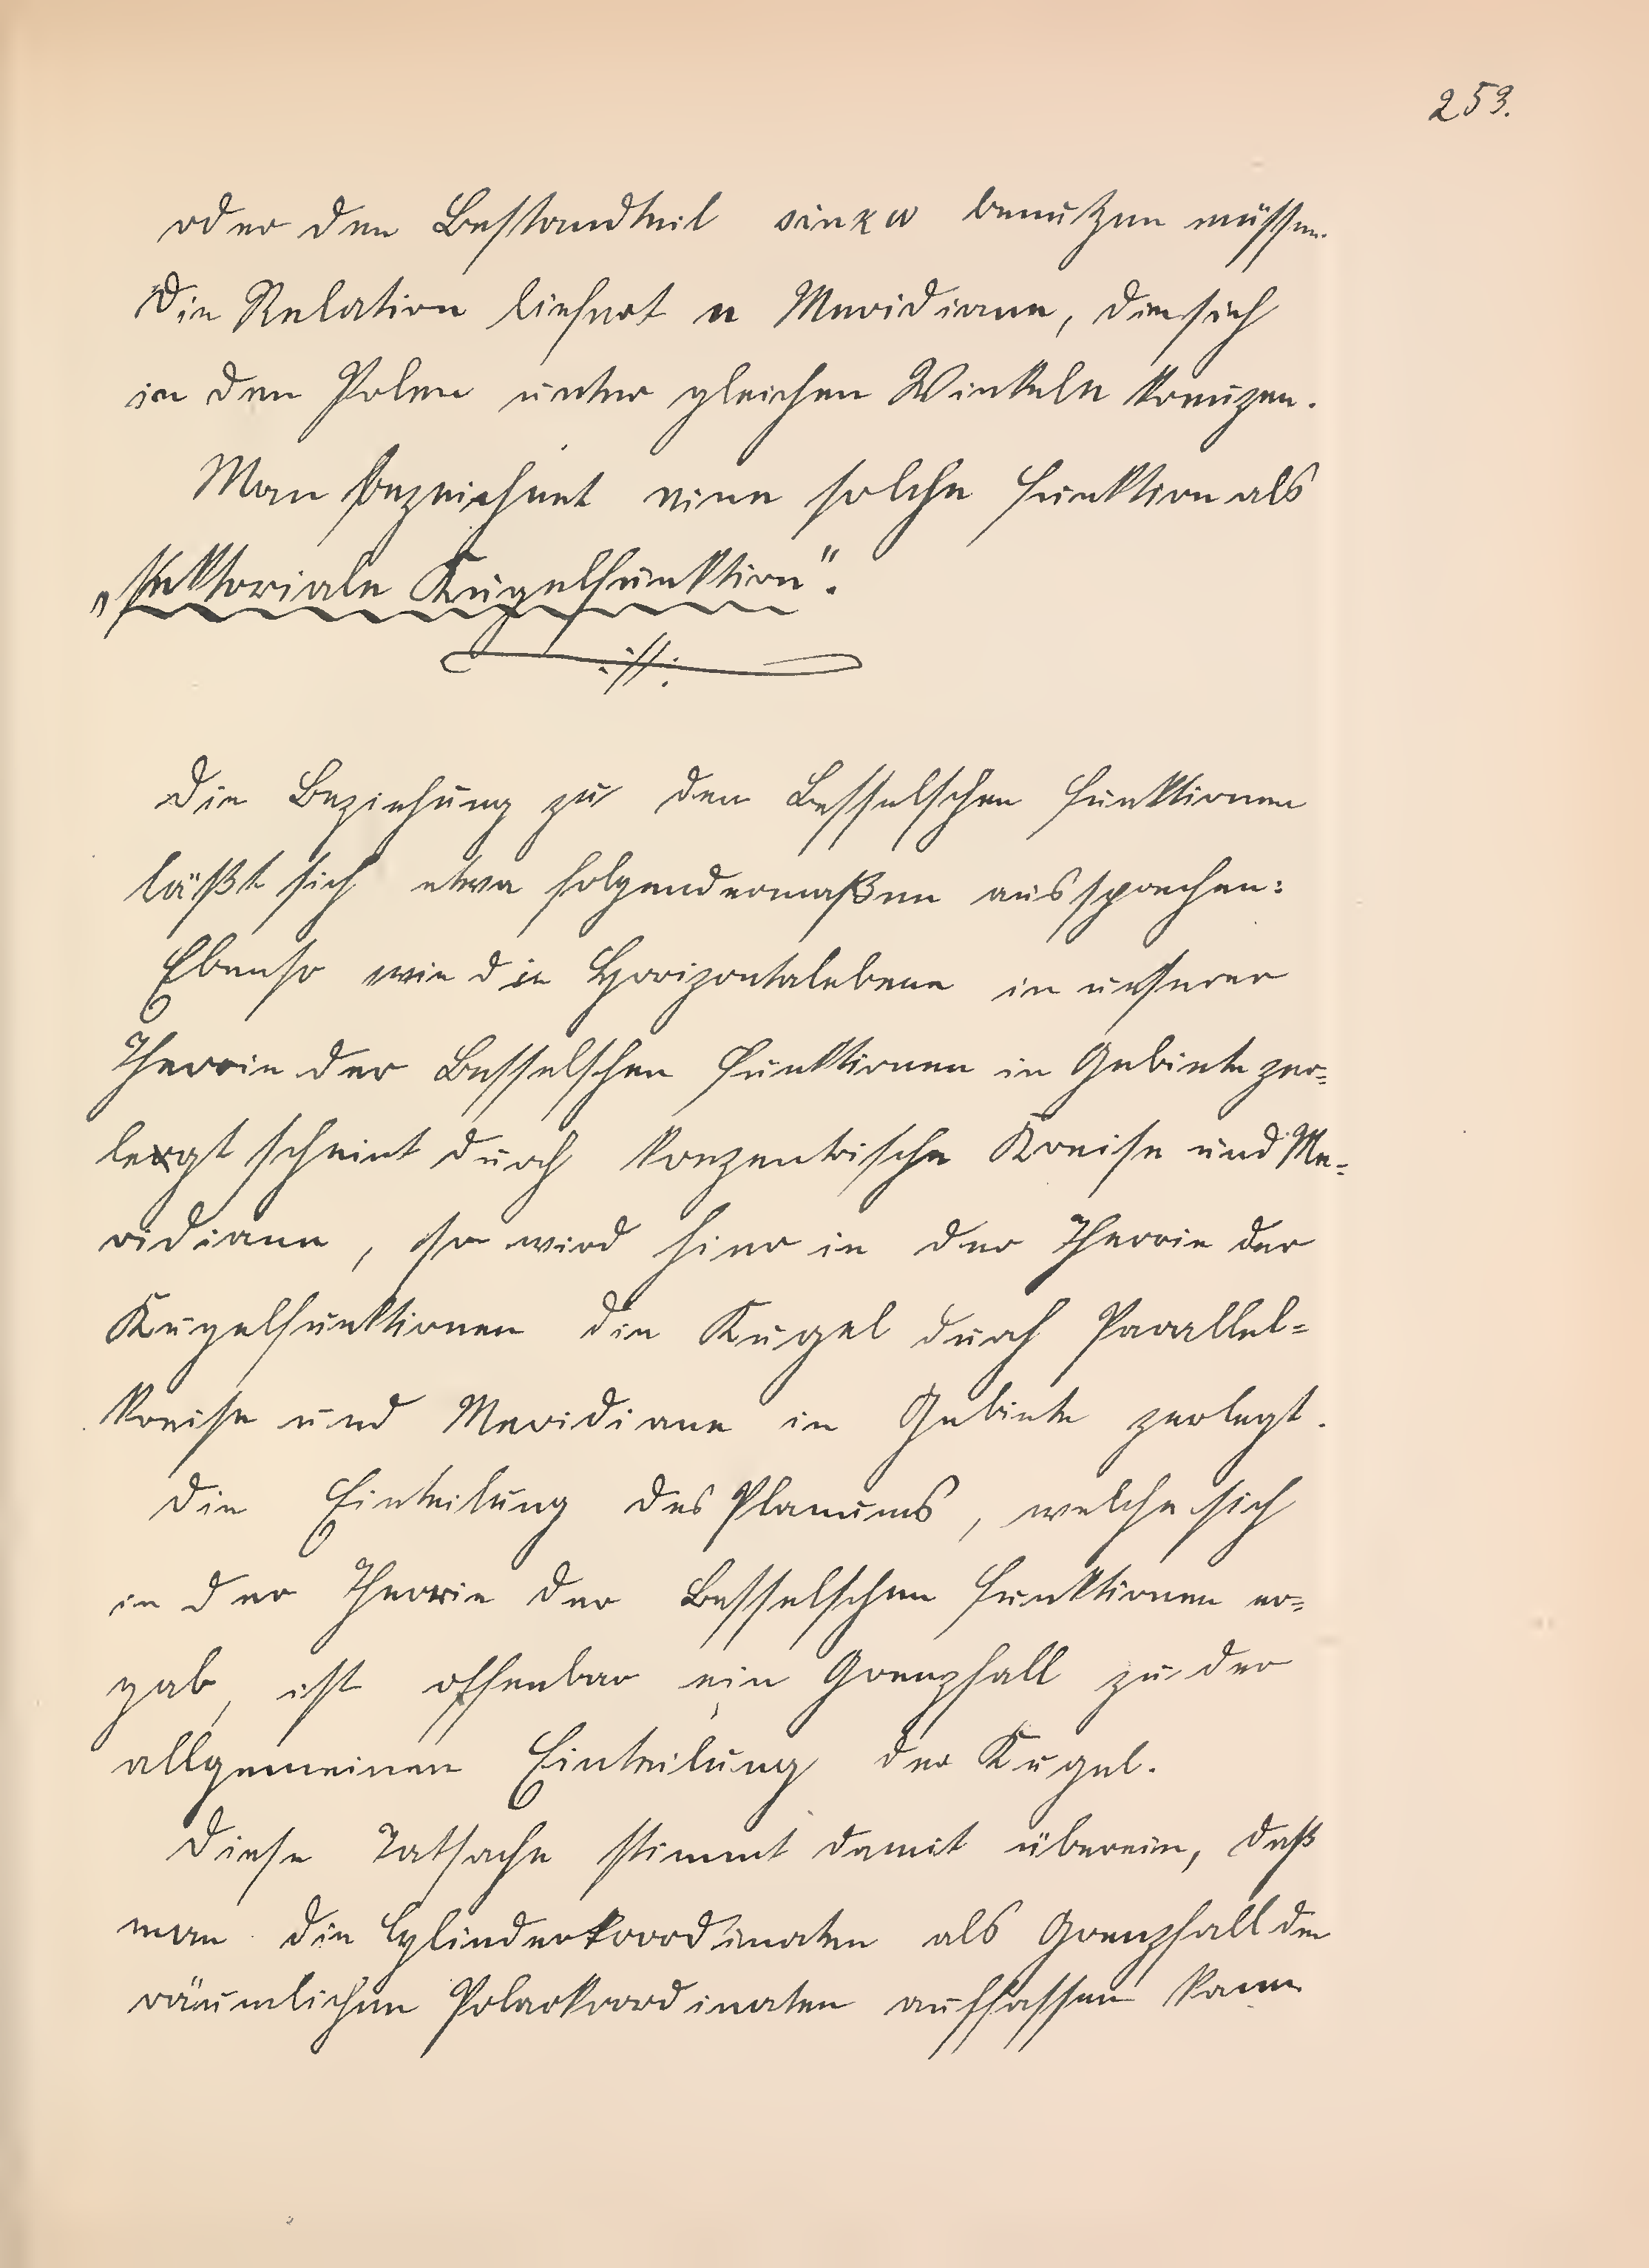 253.
oder den Bestandteil sin κ ω benutzen müssen.
Die Relation liefert n Meridiane, die sich
in den Polen unter gleichen Winkeln kreuzen.
Man bezeichnet eine solche Funktion als
„sektoriale Kugelfunktion".
Die Beziehung zu den Besselschen Funktionen
läßt sich etwa folgendermaßen aussprechen:
Ebenso wie die Horizontalebene in unserer
Theorie der Besselschen Funktionen in Gebiete zer=
legt scheint durch konzentrische Kreise und Me=
ridiane, so wird hier in der Theorie der
Kugelfunktionen die Kugel durch Parallel=
kreise und Meridiane in Gebiete zerlegt.
Die Einteilung des Planums, welche sich
in der Theorie der Besselschen Funktionen er=
gab, ist offenbar ein Grenzfall zu der
allgemeinen Einteilung der Kugel.
Diese Tatsache stimmt damit überein, daß
man die Cylinderkoordinaten als Grenzfall der
räumlichen Polarkoordinaten auffassen kann